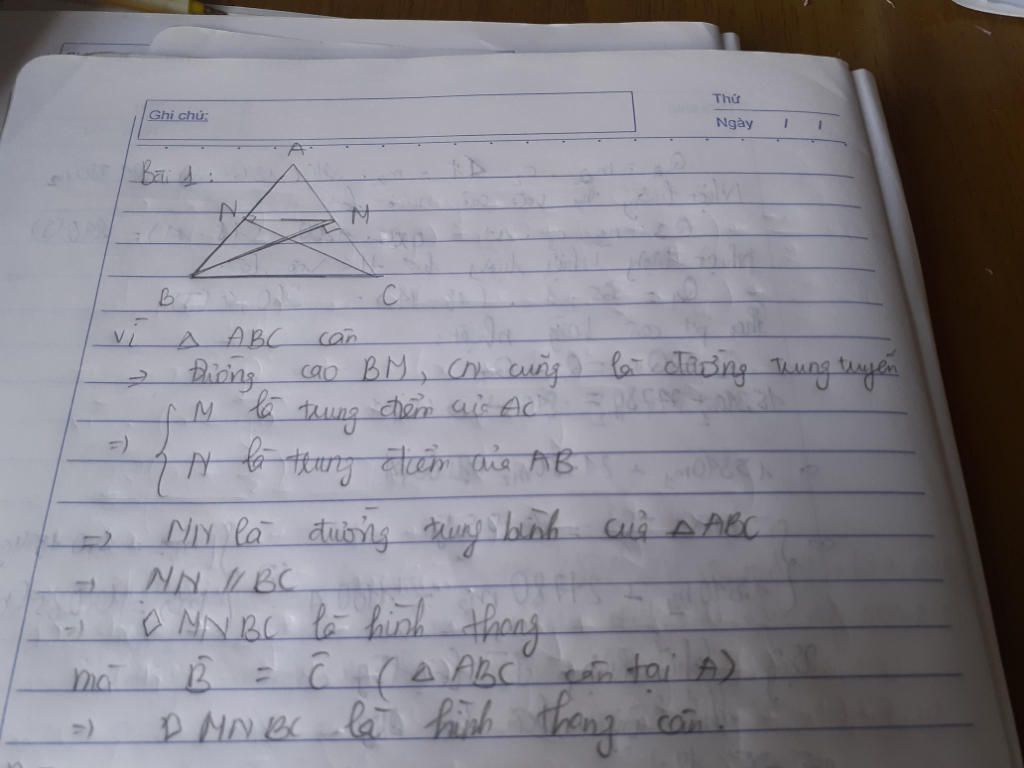 Ghi chú:
Thứ
Ngày / /
Bài 1:
A
N M
B C
vì △ ABC cân
=> Đường cao BM, CN cũng là đường trung tuyến
=> { M là trung điểm của AC
N là trung điểm của AB
=> MN là đường trung bình của △ ABC
=> MN // BC
=> MNBC là hình thang
mà B̂ = Ĉ (△ ABC cân tại A)
=> MNBC là hình thang cân.